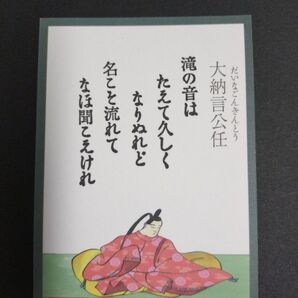 だいなごんきんとう
大納言公任
滝の音は
たえて久しく
なりぬれど
名こそ流れて
なほ聞こえけれ